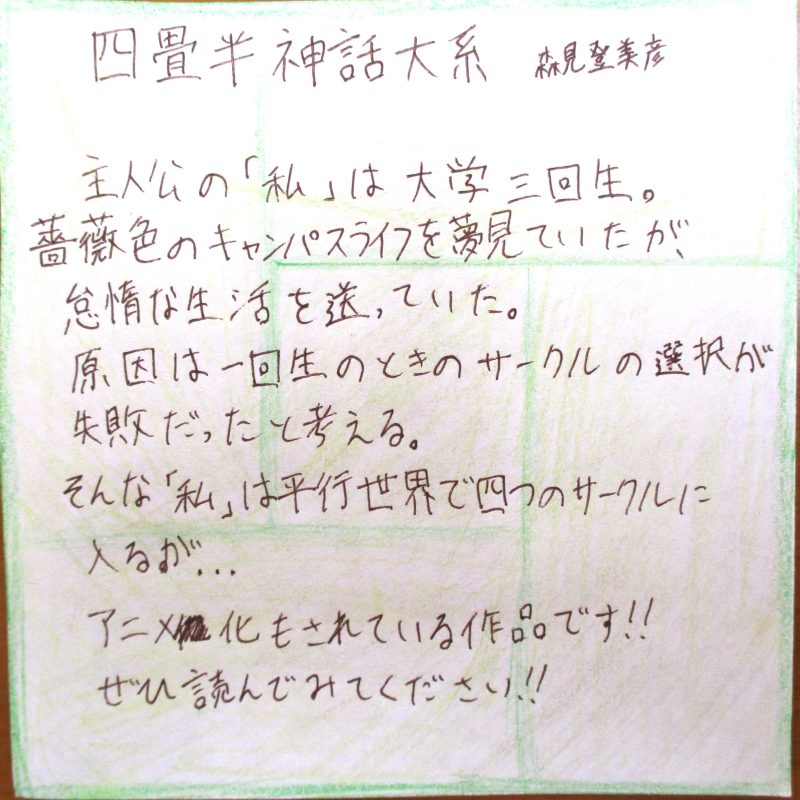 四畳半神話大系 森見登美彦
主人公の「私」は大学三回生。
薔薇色のキャンパスライフを夢見ていたが、
怠惰な生活を送っていた。
原因は一回生のときのサークルの選択が
失敗だったと考える。
そんな「私」は平行世界で四つのサークルに
入るが...
アニメ化もされている作品です!!
ぜひ読んでみてください!!